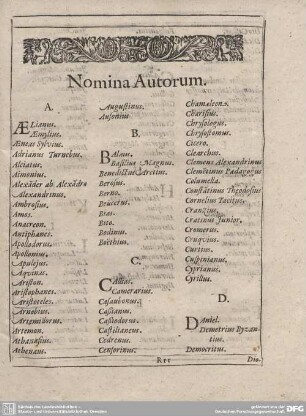 Nomina Autorum.
A.
ÆLianus.
Æmylius.
Æneas Sylvius.
Adrianus Turnebus.
Alciatus.
Aimonius.
Alexāder ab Alexādro
Alexandrinus.
Ambrosius.
Amos.
Anacreon.
Antiphanes.
Apollodorus.
Apollonius.
Apulejus.
Aquinas.
Ariston.
Aristophanes.
Aristoteles.
Arnobius.
Artemidorus.
Artemon.
Athanasius.
Athenæus.
Augustinus.
Ausonius
B.
Basilius Magnus.
Benedictus Aretius.
Berosus.
Berno.
Bias.
Bito.
Bodinus.
Boëthius.
C.
Camerarius.
Casaubonus.
Cassianus.
Cassiodorus.
Castilioneus.
Cedrenus.
Censorinus.
Chamæleon.
Charisius.
Chrysologus.
Chrysostomus.
Cicero.
Clearchus.
Clemens Alexandrinus
Clemētinus Pædagogus
Columella.
Constātinus Theodosius
Cornelius Tacitus.
Crantzius.
Cratinus Junior.
Cromerus.
Cruquius.
Curtius.
Cuspinianus.
Cyprianus.
Cyrillus.
D.
DAniel.
Demetrius Byzantius.
Democritus.
Rrr
Dio-